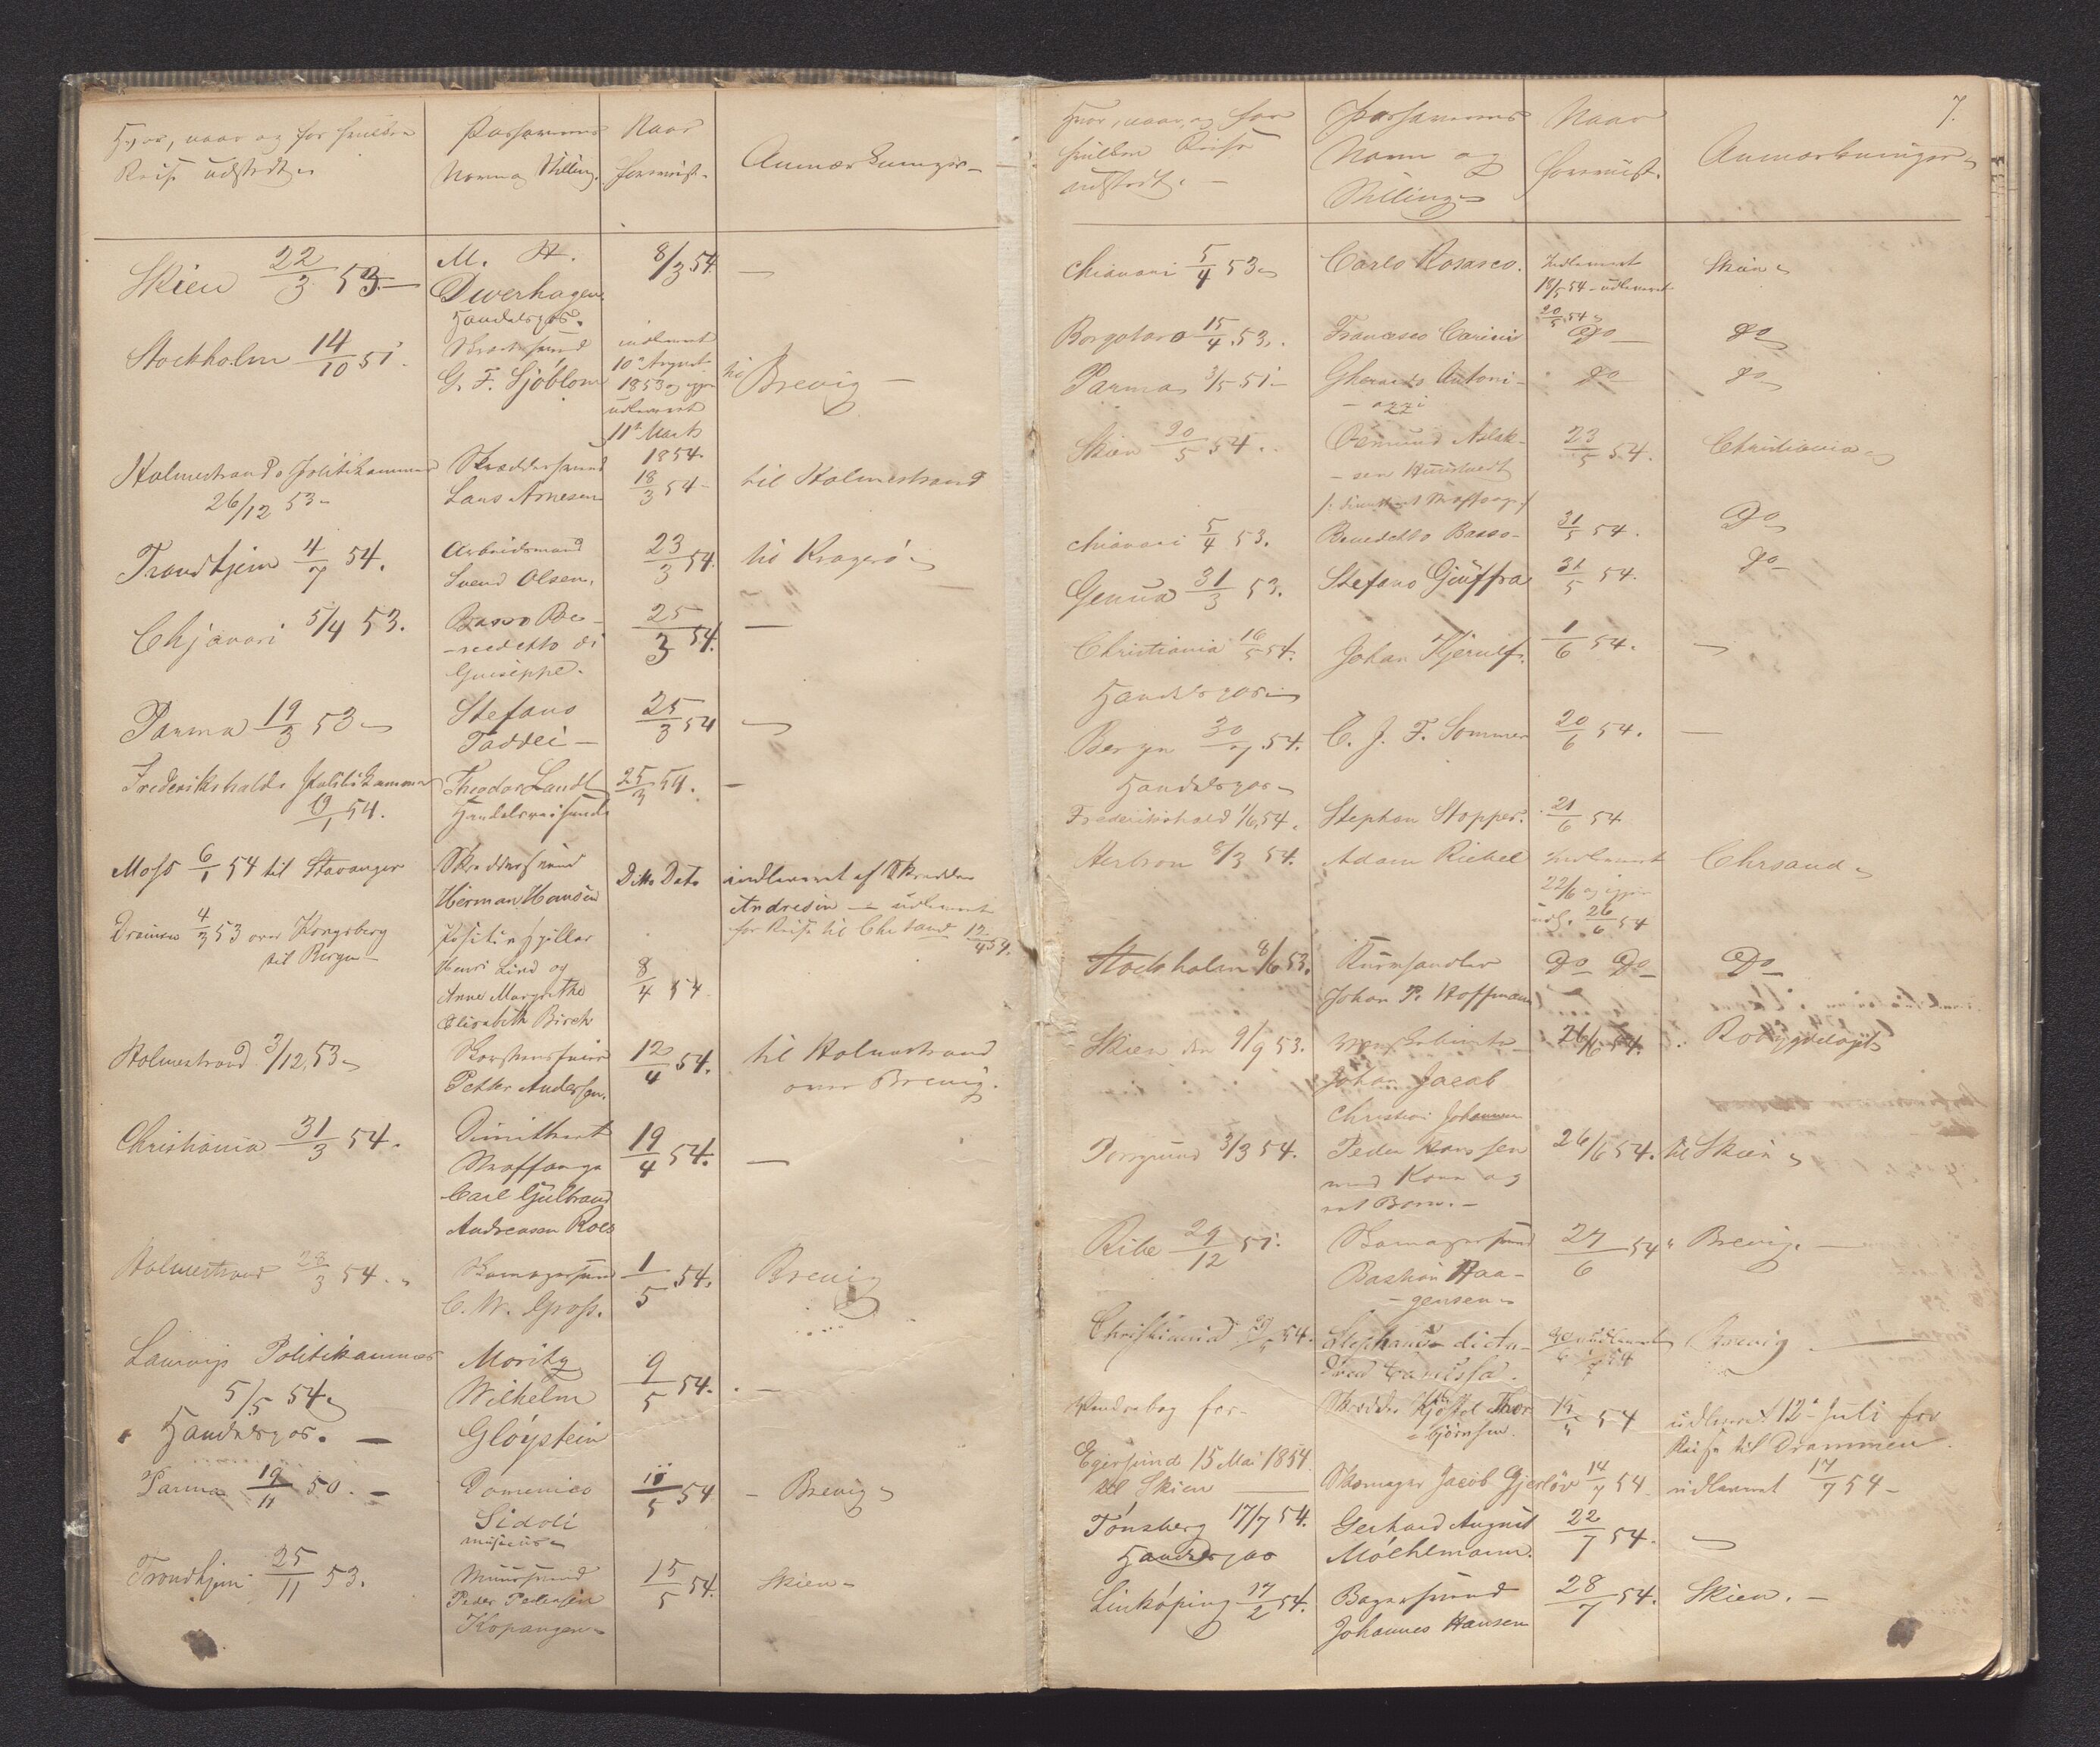 Hvor, naar og for hvilken
Reise udstedt.
Passarens
Navn og Stilling.
Naar
forevist.
Anmærkninger
Skien 22/3 53.
M. H.
Dverhagen
Handelspas.
8/3 54.
—
Stockholm 14/10 51.
G. F. Sjöblom
indleveret
10de August
1853 og igjen
udleveret
11te Marts
1854.
til Brevig —
Holmestrands Politikammer
26/12 53
Skræddersvend
Lars Arnesen
18/3 54
til Holmestrand
Trondhjem 4/7 54.
Arbeidsmand
Svend Olsen.
23/3 54.
til Kragerö
Chjavari 5/4 53.
Basso Be-
-nedetto di
Guiseppe.
25/3 54.
—
Parma 19/3 53
Stefano
Taddei —
25/3 54
—
Frederikshalds Politikammer
/1 54.
Theodor Landt
Handelsreisende
25/3 54.
—
Moss 6/1 54 til Stavanger
Skræddersvend
Herman Hansen
Ditto Dato
indleveret af Skrædder
Andresen — udleveret
for Reise til Chrsand 12/4 54.
Drammen 4/3 53 over Kongsberg
til Bergen —
Positivspiller
Henri Lind og
Anne Margrethe
Elisabeth Birch
8/4 54
Holmestrand 3/12 53
Skorstensfeier
Petter Andersen.
12/4 54.
til Holmestrand
over Brevig.
Christiania 31/3 54.
Dimitteret
Straffange
Carl Gulbrand
Andreasen Roes
19/4 54.
—
Holmestrand 28/3 54.
Skomagersvend
C. W. Gross.
1/5 54.
Brevig
Laurvigs Politikammer
5/5 54.
Handelspas. —
Moritz
Wilhelm
Glöystein
9/5 54.
—
Parma 19/11 50. —
Domenico
Sidoli
musicus
/5 54
— Brevig
Trondhjem 25/11 53.
Muursvend
Peder Pedersen
Kopangen
15/5 54.
Skien —
7.
Hvor, naar, og for
hvilken Reise
udstedt. —
Passarens
Navn og
Stilling
Naar
forevist.
Anmærkninger
Chiavari 5/4 53
Carlo Rosasco.
Indleveret
18/5 54 — udleveret
20/5 54
Skien
Borgotaro 15/4 53.
Francesco Carini
Do
do
Parma 3/5 51 —
Gherardo Antoni-
— ozzi
do
do
Skien 20/5 54.
Osmund Aslak-
-sen
/: dimitteret Straffange :/
23/5 54.
Christiania
Chiavari 5/4 53.
Benedetto Basso —
31/5 54.
Do
Genua 31/3 53.
Stefano Giuffra
31/5 54.
do
Christiania 16/5 54.
Handelspas
Johan Kjerulf.
1/6 54.
—
Bergen 30/ 54.
Handelspas
C. J. F. Sommer
20/6 54.
—
Frederikshald 1/6 54.
Stephan Stopper.
21/6 54
Herbron 8/3 54.
Adam Riekel
Indleveret
22/6 og igjen
udl. 26/6 54
Chrsand
Stockholm 8/6 53.
Johan P. Hoffmann
Do Do
Do
Skien den 9/9 53.
Johan Jacob
Christian Johannsen
26/6 54.
Porsgrund 3/3 54.
Peder Hanssen
med Kone og
et Barn. —
26/6 54.
til Skien
Ribe 29/12 51.
Skomagersvend
Bastian Haa-
-gensen
27/6 54
Brevig. —
Christiania 54.
Brevig —
Vandrebog for
Egersund 15 Mai 1854
til Skien
Skrædder
54
udleveret 12te Juli for
Reise til Drammen.
Skomager Jacob Gjerlöv
14/7 54
udleveret 17/7 54 —
Tönsberg 17/7 54.
Handelspas
Gerhard August
Möehlmann.
22/7 54.
—
Linköping 17/2 54.
Bagersvend
Johannes Hansen
28/7 54.
Skien. —